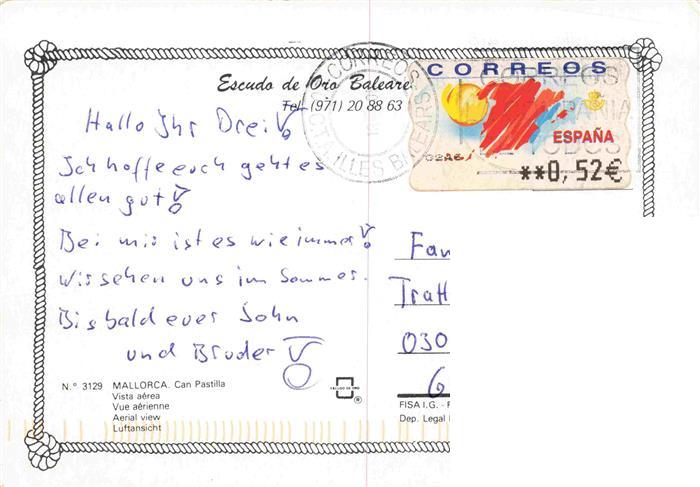 Escudo de Oro Baleares
Tel. (971) 20 88 63
CORREOS
CORREOS
ESPAÑA
**0,52€
Hallo Ihr Drei!
Ich hoffe euch geht es
allen gut!
Bei mir ist es wie immer!
wir sehen uns im Sommer.
Bis bald euer Sohn
und Bruder!
Fam
Tratt
030
6
N.º 3129 MALLORCA. Can Pastilla
Vista aérea
Vue aérienne
Aerial view
Luftansicht
ESCUDO DE ORO
®
FISA I.G. -
Dep. Legal